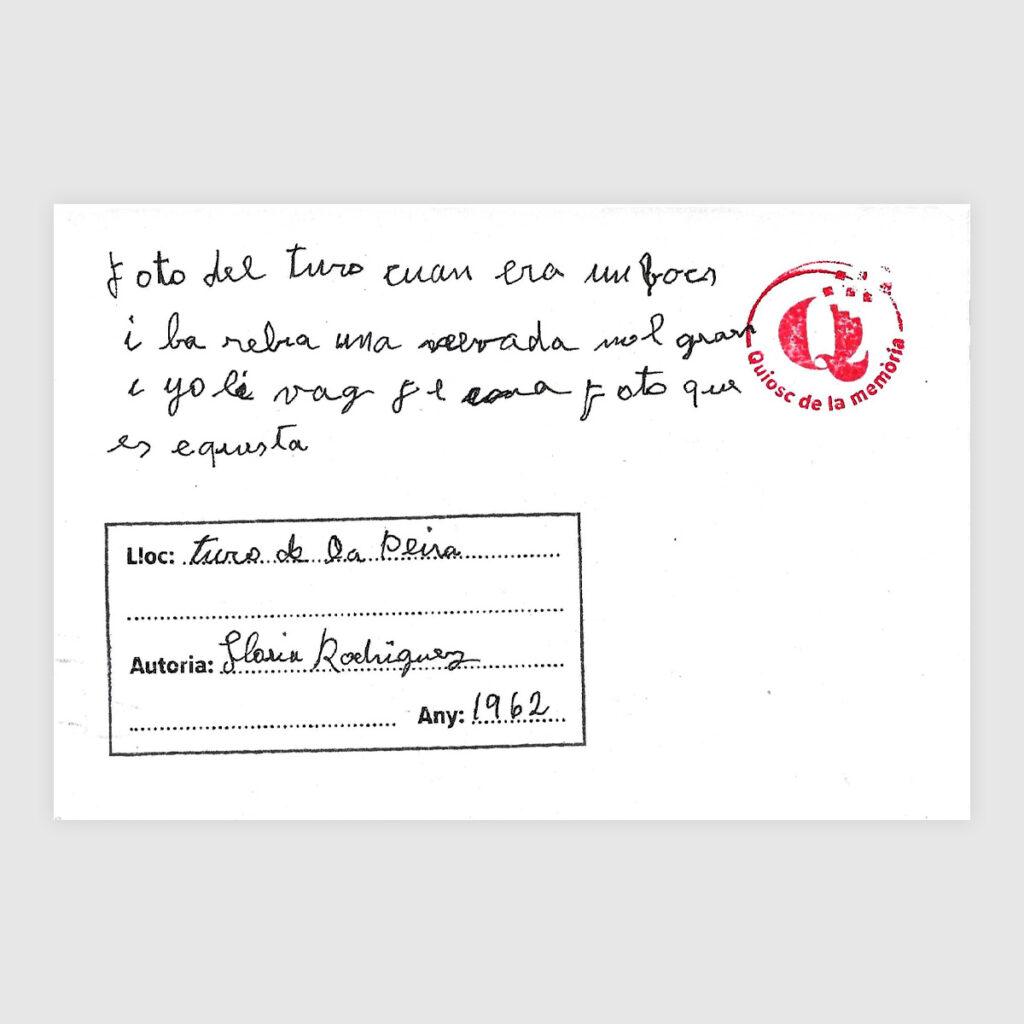 Foto del turo cuan era un bocs
i ba rebra una nevada mol gran
i yo li vag fe una foto que
es equesta
Quiosc de la memòria
Lloc: turo de la Peira
Autoria: Gloria Rodriguez
Any: 1962